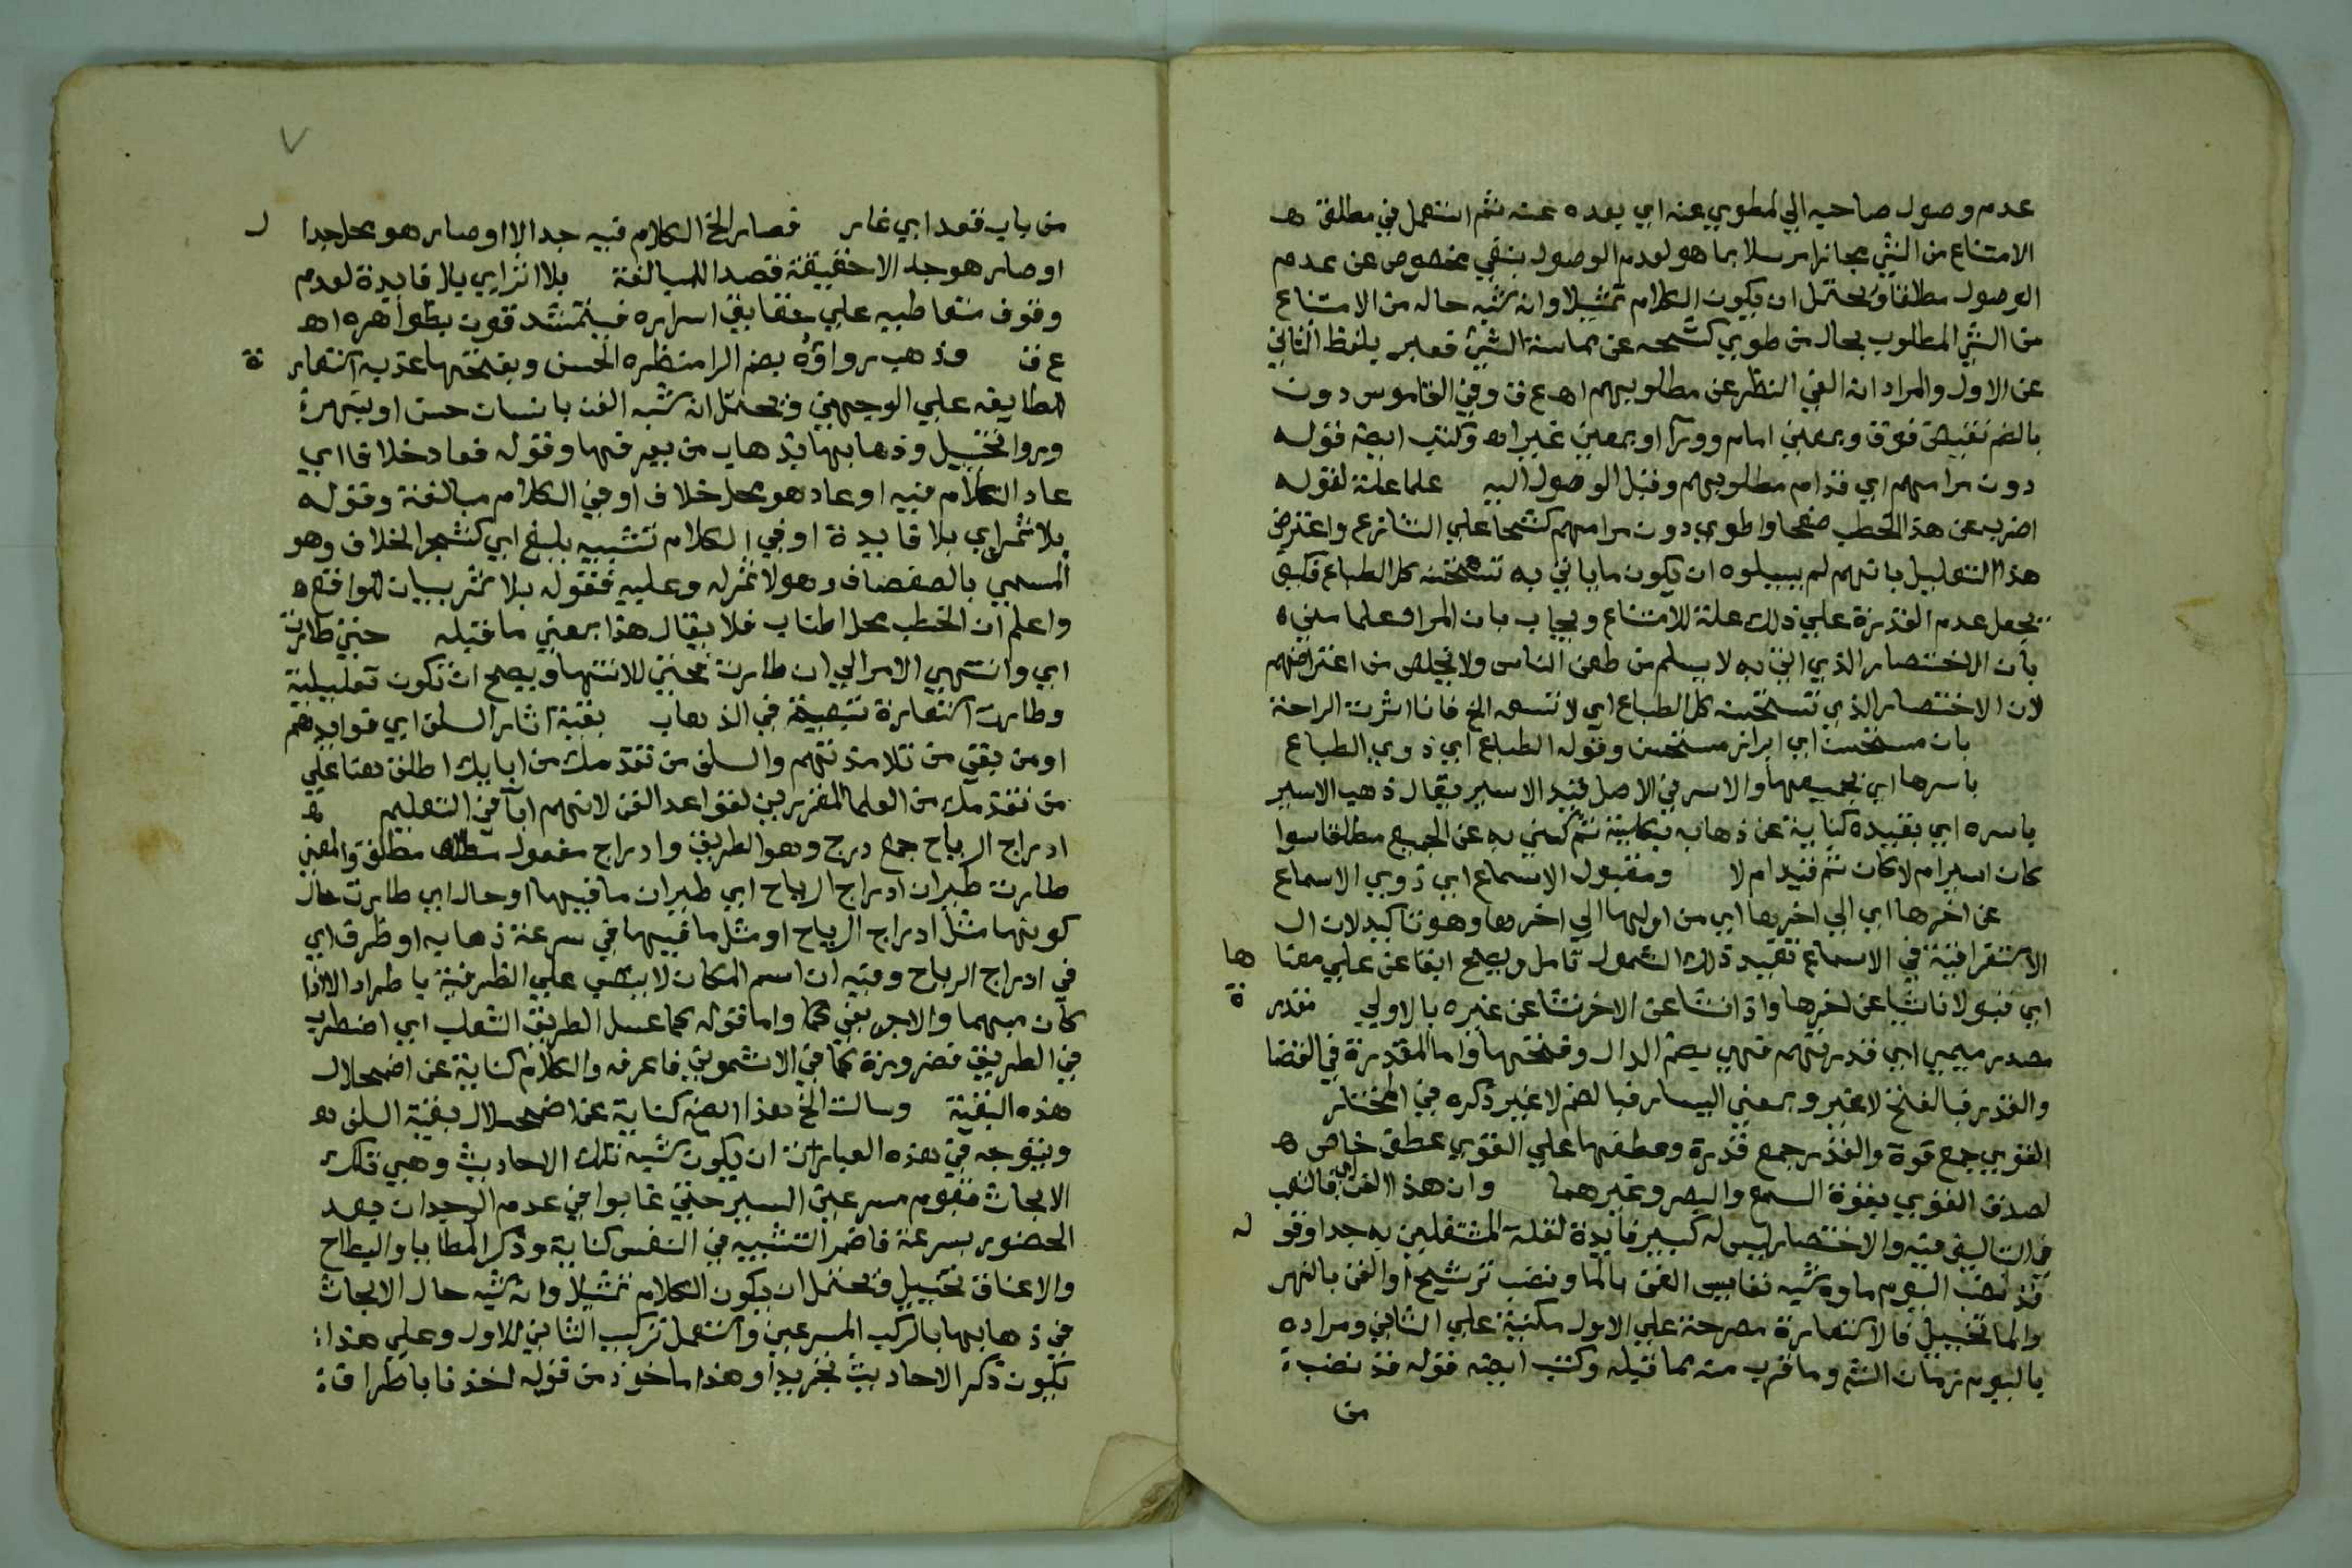 عدم وصول صاحبه الي المطوي عنه اي بعده عنه ثم استعمل في مطلق ه
الامتناع من الشي مجازا مرسلا بما هو لعدم الوصول بنفي مخصوص عن عدم
الوصول مطلقا ويحتمل ان يكون الكلام تمثيلا وانه شبه حاله من الامتناع
من الشي المطلوب بحال من طوي كشحه عن مماسة الشي فعبر بلفظ الثاني
عن الاول والمراد انه الغي النظر عن مطلوبهم اه ع ق وفي القاموس دون
بالضم نقيض فوق وبمعني امام وورآ وبمعني غير اه وكتب ايضه قوله
دون مرامهم اي قدام مطلوبهم وقبل الوصول اليه علما علة لقوله
اضرب عن هذا الخطب صفحا واطوي دون مرامهم كشحا علي التنازع واعترض
هذا التعليل بانهم لم يسيلوه ان يكون ما ياتي به تستحسنه كل الطباع فكيف
يجعل عدم القدرة علي ذلك علة للامتناع ويجاب بان المراد علما مني ه
بان الاختصار الذي اتي به لا يسلم من طعن الناس ولا يخلص من اعتراضهم
لان الاختصار الذي تستحسنه كل الطباع اي لا تسعه الخ فانا اثرت الراحة
بان مستحسن اي ابراز مستحسن وقوله الطباع اي ذوي الطباع
باسرها اي بجميعها والاسر في الاصل قيد الاسير يقال ذهب الاسير
باسره اي بقيده كناية عن ذهابه بكليته ثم كني به عن الجميع مطلقا سوا
كان اسيرام لا كان ثم قيد ام لا ومقبول الاسماع اي ذوي الاسماع
عن اخرها اي الي اخرها اي من اولها الي اخرها وهو تاكيد لان ال
الاستغراقية في الاسماع تفيد ذلك الشمول تامل ويصح ابقا عن علي معنا ها
اي قبولا ناشيا عن اخرها واذا نشا عن الاخر نشا عن غيره بالاولي مقدر ة
مصدر ميمي اي قدرتهم فهي بضم الدال وفتحها واما المقدرة في القضا
والقدر فبالفتح لا غير وبمعني اليسار فبالضم لا غير ذكره في المختار
القوي جمع قوة والقدر جمع قدرة وعطفها علي القوي عطف خاص ه
لصدق القوي بقوة السمع والبصر وغيرهما وان هذا الفن اي فالتعب
في التاليف فيه والاختصار ليس له كبير فايدة لقلة المشتغلين به جدا وقو له
قد نضب اليوم ماوه شبه نفايس الفن بالما ونضب ترشيح او الفن بالنهر
والما تخييل فالاستعارة مصرحة علي الاول مكنية علي الثاني ومراده
باليوم زمان الشم وما قرب منه مما قبله وكتب ايضه قوله قد نضب ة
من
٧
من باب قعد اي غار فصار الخ الكلام فيه جدالا او صار هو محل جدا ل
او صار هو جدالا حقيقة قصدا للمبالغة بلا اثر اي بلا فايدة لعدم
وقوف متعاطيه علي حقايق اسراره فيتمشدقون بظواهره اه
ع ق وذهب رواؤه بضم الرا منظره الحسن وبفتحها عذبه استعار ة
لطايفه علي الوجهين ويحتمل انه شبه الفن بانسان حسن او بنهرة
وروا تخييل وذهابها بذهاب من يعرفها وقوله فعاد خلافا اي
عاد الكلام فيه او عاد هو محل خلاف او في الكلام مبالغة وقوله
بلا ثمر اي بلا فايدة او في الكلام تشبيه بليغ اي كشجر الخلاف وهو
المسمي بالصفصاف وهو لا ثمر له وعليه فقوله بلا ثمر بيان للواقع ه
واعلم ان الخطب محل اطناب فلا يقال هذا بمعني ما قبله حتي طارت
اي وانتهي الامر الي ان طارت فحتي للانتها ويصح ان تكون تعليلية
وطارت استعارة تبعية في الذهاب بقية اثار السلف اي فوايدهم
او من بقي من تلامذتهم والسلف من تقدمك من ابايك اطلق هنا علي
من تقدمك من العلما المقررين لقواعد الفن لانهم ابآ في التعليم ه
ادراج الرياح جمع درج وهو الطريق وادراج مفعول مطلق والمعني
طارت طيران ادراج الرياح اي طيران ما فيها او حال اي طارت حال
كونها مثل ادراج الرياح او مثل ما فيها في سرعة ذهابه او ظرف اي
في ادراج الرياح وفيه ان اسم المكان لا ينصب علي الظرفية باطراد الا اذا
كان مبهما والا جر بفي كما واما قوله كما عسل الطريق الثعلب اي اضطرب
في الطريق فضرورة كما في الاشموني فاعرفه والكلام كناية عن اضمحلال
هذه البقية وسالت الخ هذا ايضه كناية عن اضمحلال بقية السلف ه
ويتوجه في هذه العبارة ان يكون شبه تلك الاحاديث وهي تلك
الابحاث بقوم مسرعين السير حتي غابوا في عدم الوجدان بعد
الحضور بسرعة فاضمر التشبيه في النفس كناية وذكر المطايا والبطاح
والاعناق تخييل ويحتمل ان يكون الكلام تمثيلا وانه شبه حال الابحاث
في ذهابها بالركب المسرعين واستعمل تركيب الثاني للاول وعلي هذا
يكون ذكر الاحاديث تجريدا وهذا ماخوذ من قوله اخذنا باطراف ة